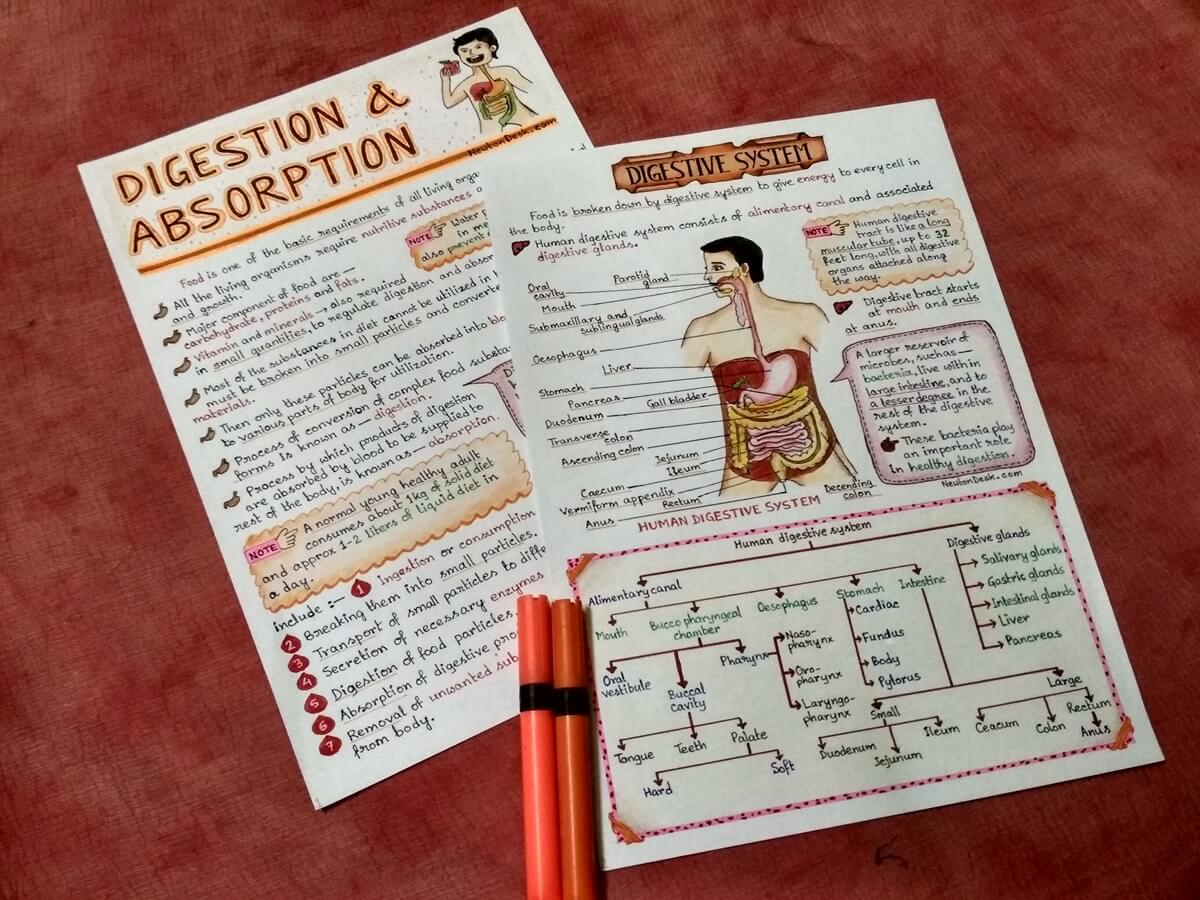 DIGESTION &
ABSORPTION
NeutonDesk.com
Food is one of the basic requirements of all living
All the living organisms require nutritive substances
and growth.
Major component of food are —
carbohydrate, proteins and fats.
Vitamin and minerals → also required
in small quantities, to regulate digestion and
Most of the substances in diet cannot be utilized in
must be broken into small particles and
materials.
Then only these particles can be absorbed into
to various parts of body for utilization.
Process of conversion of complex food
forms is known as — digestion.
Process by which products of digestion
are absorbed by blood to be supplied to
rest of the body, is known as — absorption.
NOTE
Water
in
also prevent
NOTE
A normal young healthy adult
consumes about 1kg of solid diet
and approx 1-2 liters of liquid diet in
a day.
include :—
1 Ingestion or consumption
2 Breaking them into small particles.
3 Transport of small particles to
4 Secretion of necessary enzymes
5 Digestion of food particles.
6 Absorption of digestive
7 Removal of unwanted
from body.
DIGESTIVE SYSTEM
Food is broken down by digestive system to give energy to every cell in
the body.
Human digestive system consists of alimentary canal and associated
digestive glands.
NOTE
Human digestive
tract is like a long
muscular tube, up to 32
feet long, with all digestive
organs attached along
the way.
Digestive tract starts
at mouth and ends
at anus.
A larger reservoir of
microbes, such as —
bacteria, live with in
large intestine, and to
a lesser degree in the
rest of the digestive
system.
These bacteria play
an important role
In healthy digestion.
NeutonDesk.com
Parotid
gland
Oral
cavity
Mouth
Submaxillary and
sublingual glands
Oesophagus
Liver
Stomach
Pancreas
Gall bladder
Duodenum
Transverse
colon
Ascending colon
Jejunum
Ileum
Caecum
Vermiform appendix
Rectum
Anus
Decending
colon
HUMAN DIGESTIVE SYSTEM
Human digestive system
Alimentary canal
Digestive glands
Salivary glands
Gastric glands
Intestinal glands
Liver
Pancreas
Mouth
Bucco pharyngeal
chamber
Oesophagus
Stomach
Intestine
Cardiac
Fundus
Body
Pylorus
Oral
vestibule
Buccal
cavity
Pharynx
Naso-
pharynx
Oro-
pharynx
Laryngo-
pharynx
Small
Large
Tongue
Teeth
Palate
Hard
Soft
Duodenum
Jejunum
Ileum
Ceacum
Colon
Rectum
Anus